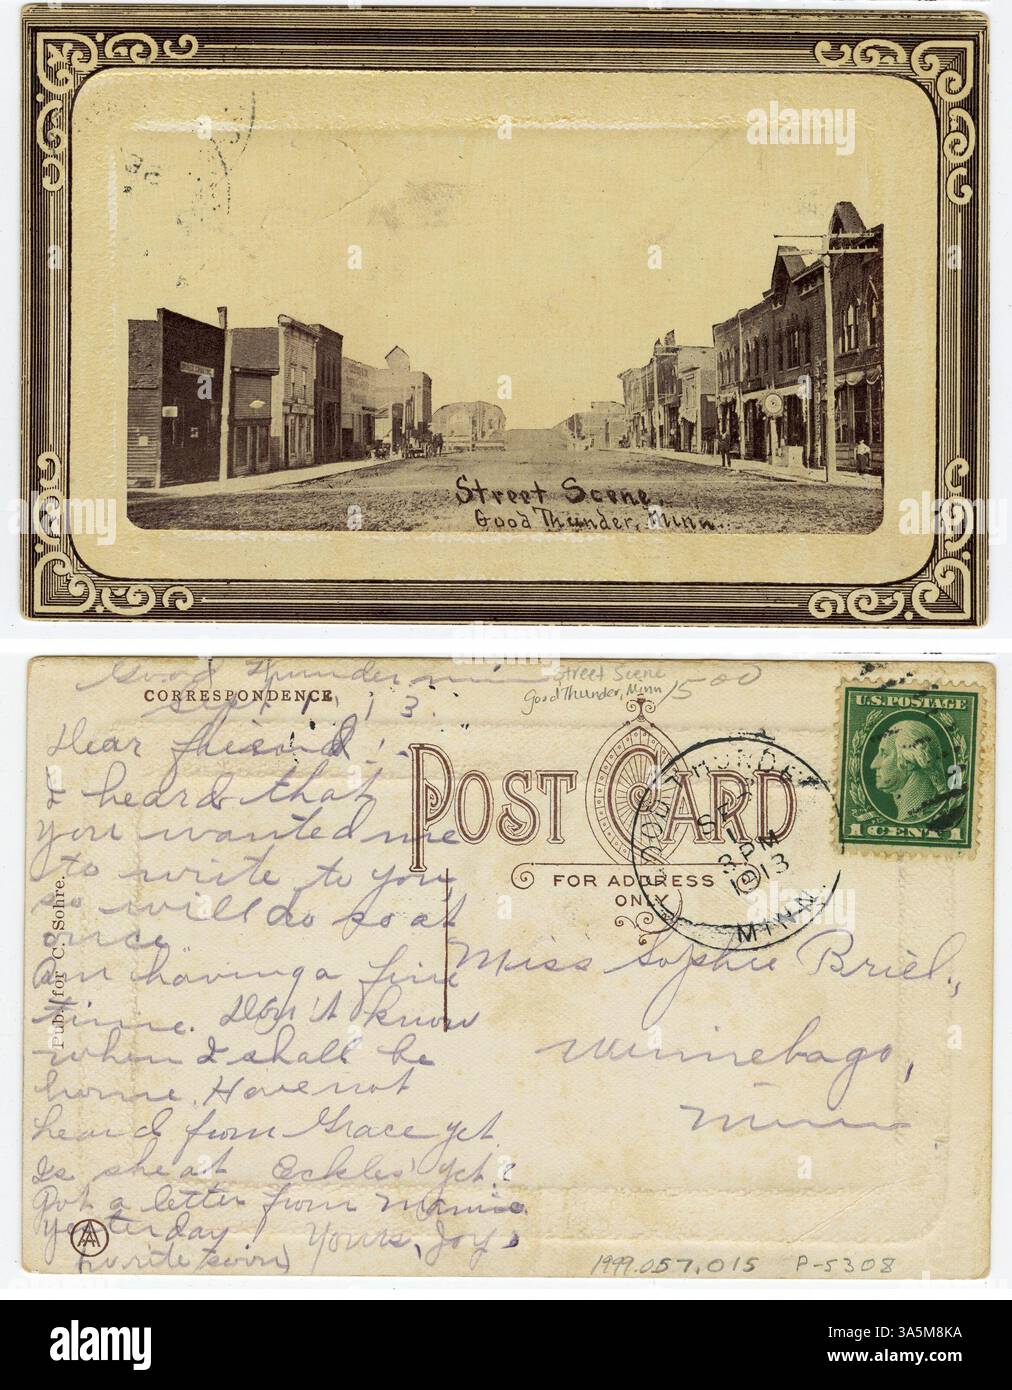 Street Scene,
Good Thunder, Minn.
Good Thunder Minn
Street Scene
Good Thunder, Minn
1500
CORRESPONDENCE
Sept 1, 13.
Dear friend:-
I heard that
you wanted me
to write to you,
so will do so at
once.
Am having a fine
time. Don't know
when I shall be
home. Have not
heard from Grace yet.
Is she at Eckles' yet?
Got a letter from Mamie
yesterday. Yours, Joy.
(write soon)
Pub. for C. Sohre.
POST CARD
FOR ADDRESS
ONLY
GOOD THUNDER
SEP
1
3 PM
1913
MINN.
U.S. POSTAGE
1 CENT 1
Miss Sophie Briel.,
Winnebago,
Minn
1999.057.015 P-5308
alamy
Image ID: 3A5M8KA
www.alamy.com